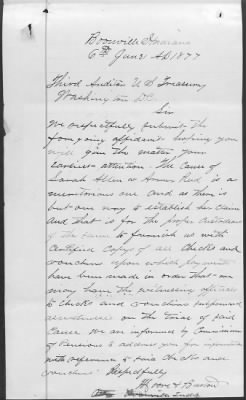 Boonville Indiana
6th June AD 1877
Third Auditor U S Treasury
Washington DC
Sir
We respectfully submit the
foregoing affidavit hoping you
will give the matter your
earliest attention. The Cause of
Sarah Allen
meritorious one and as there is
but one way to establish her claim
and that is for the proper Custodians
of the same to furnish us with
Certified Copies of all Checks and
vouchers upon which payments
have been made in order that we
may have the witnessing officers
to checks and vouchers
on the trial of said
Cause We are informed by Commissioner
of Pensions to address you for information
with reference to said Checks and
vouchers. Respectfully
Moore &